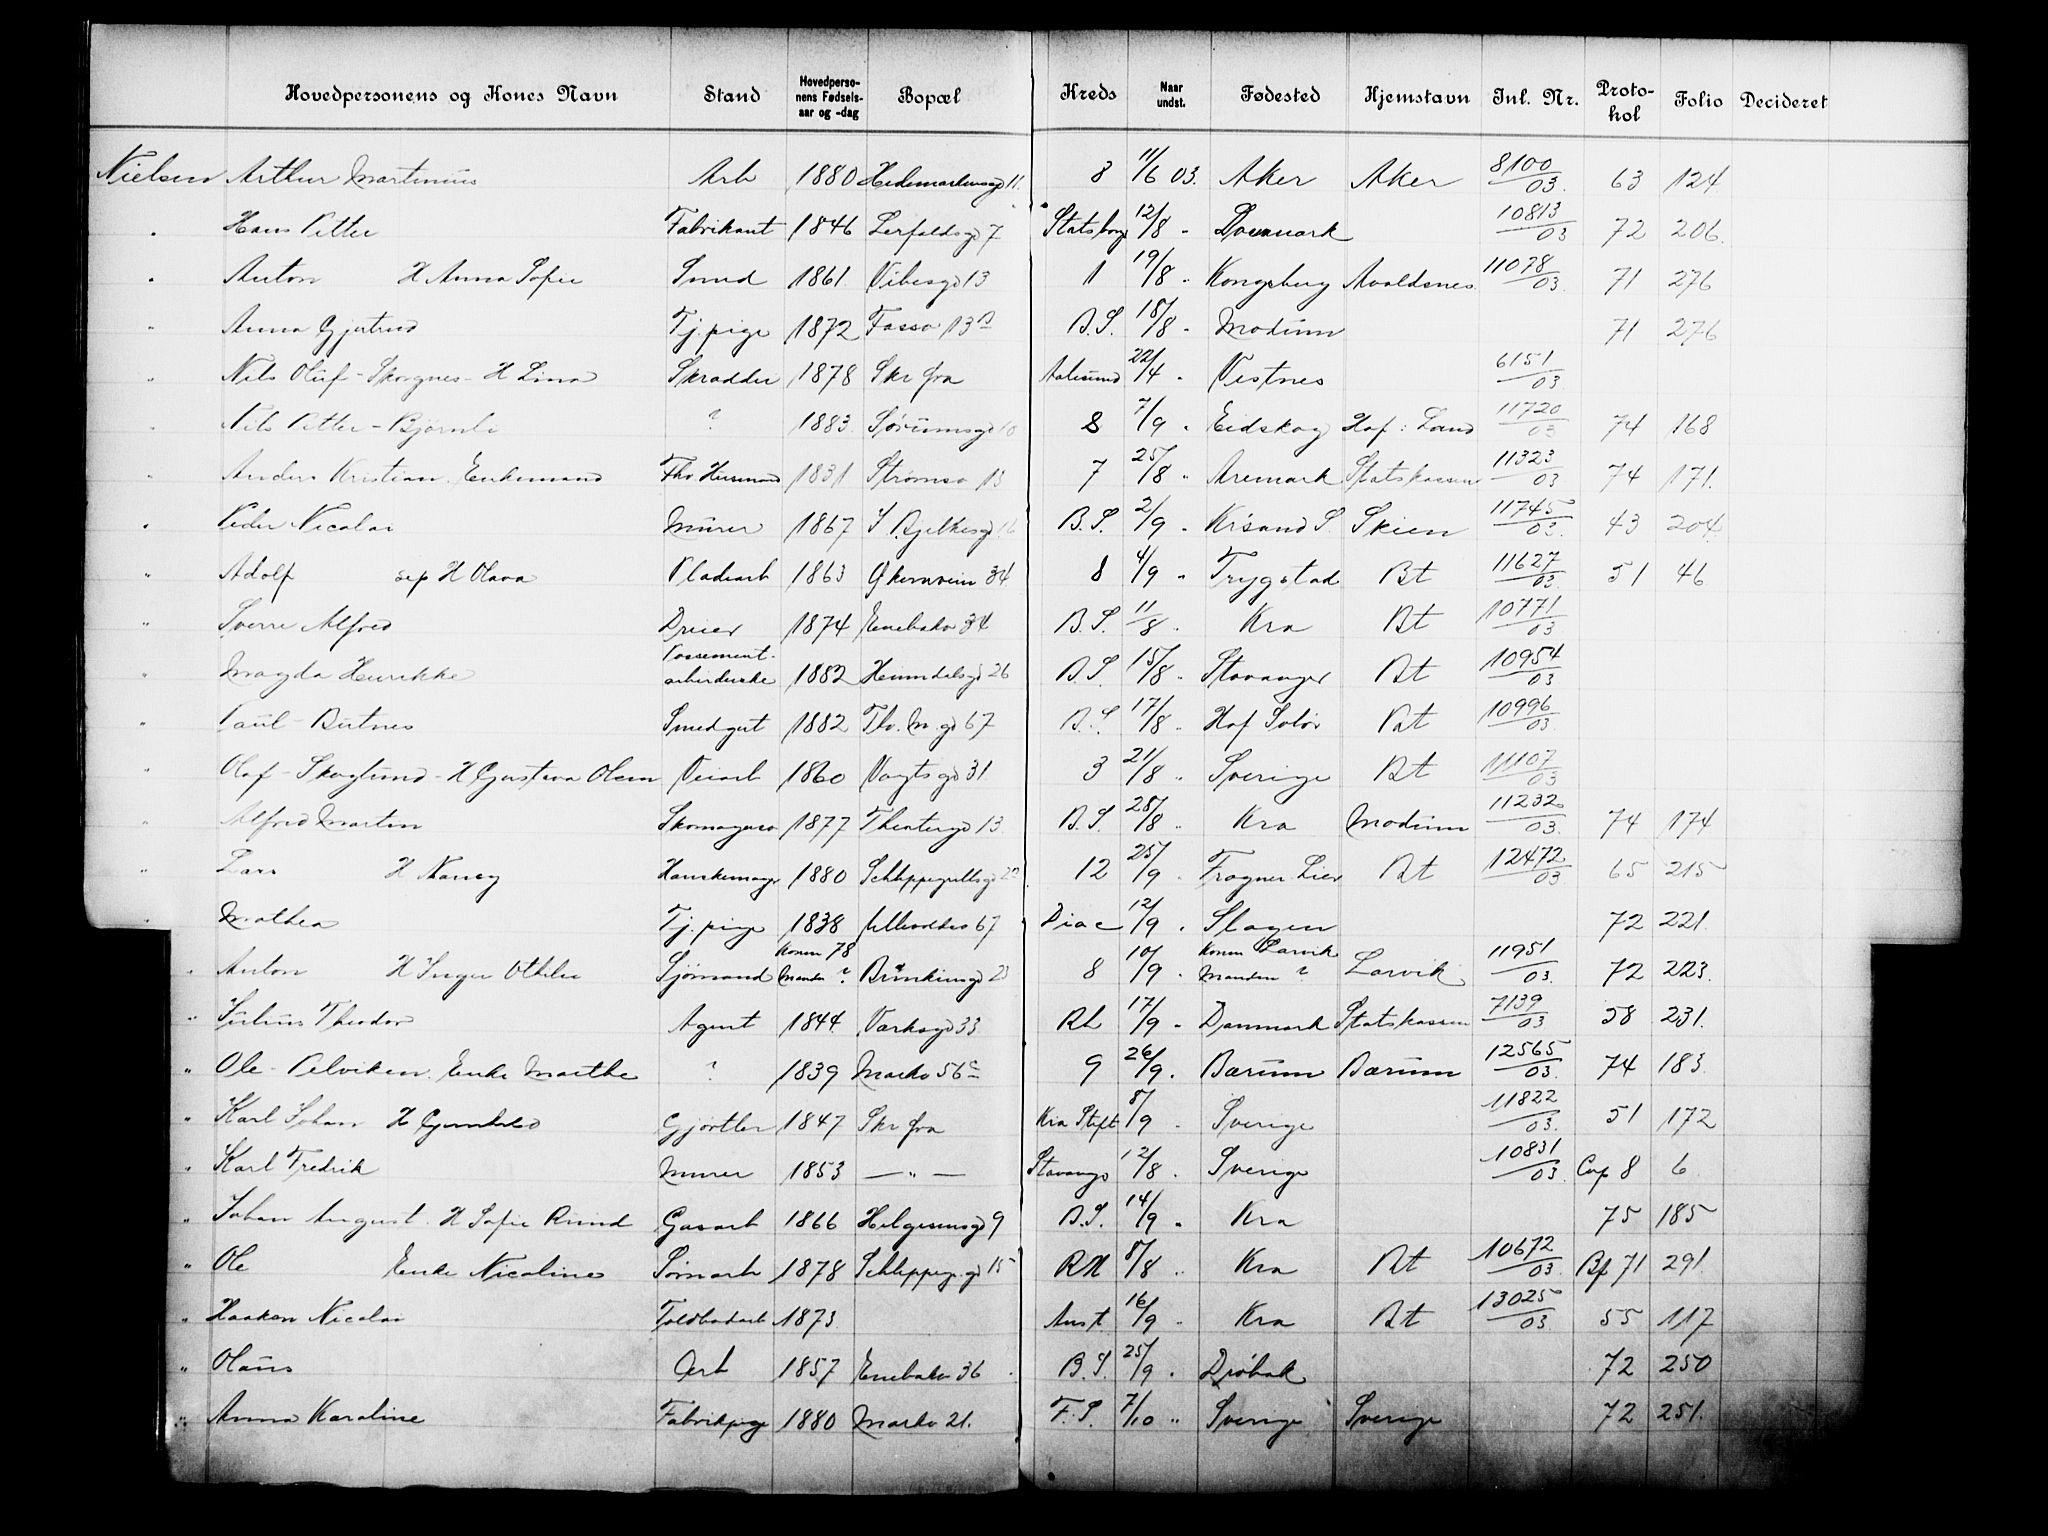 Hovedpersonens og Kones Navn Stand Hovedpersonens Fødselsaar og -dag Bopæl Kreds Naar undst. Fødested Hjemstavn Inl. Nr. Protokol Folio Decideret
Nielsen Arthur Martinius Arb 1880 Hedemarkensgd 11. 8 11/6 03. Aker Aker 8100/03. 63 124
" Hans Petter Fabrikant 1846 Lerfaldsgd 7 Statsborg 12/8 " Danmark 10813/03 72 206.
" Anton H Anna Sofie Smed 1861. Vibesgd 13 1 19/8 " Kongsberg Avaldsnes 11078/03 71 276
" Anna Gjertrud Tj.pige 1872 Fosso 13 B B.S. 18/8 " Modum 71 276
" Nils Oluf - Skorgnes - H Lina Skrædder 1878 Skr fra Aalesund 22/4 " Vestnes 6151/03
" Nils Petter - Bjørnli ? 1883. Sørumsgd 10 8 7/9 " Eidskog Hof: Land 11720/03 74 168
" Anders Kristian. Enkemand Fhv. Husmand 1831 Strømso 13 7 25/8 " Aremark Statskassen 11323/03 74 171.
" Peder Nicolai Murer 1867 J Bjelkesgd 16 B.S. 2/9 " Krsand S. Skien 11745/03. 43 204.
" Adolf sep H Olava Pladearb 1863 Økernvein 34 8 4/9 " Trygstad Bt 11627/03. 51 46
" Sverre Alfred Dreier 1874 Enebakv 34 B.S. 11/8 " Kra Bt 10771/03
" Magda Henrikke Possementarbeiderske 1882 Heimdalsgd 26 B.S. 15/8 " Stavanger Bt 10954/03
" Paul - Butnes Smedgut 1882 Th. M. gd 67 B.S. 17/8 " Hof Solør Bt 10996/03.
" Olaf - Skoglund - H Gustava Olsen Veiarb 1860 Vogtsgd 31. 3 21/8 " Sverige Bt 11107/03
" Alfred Martin Skomagersv 1877 Theatergd 13. B.S. 28/8 " Kra Modum 11232/03. 74 174
" Lars H Nancy Hanskemager 1880 Schleppegrellsgd 12 25/9 " Frogner Lier Bt 12472/03 65 215
" Mathea Tj. pige 1838 Ullevoldsv 67 Diac 12/9 " Slagen 72 221.
" Anton H Inger Othilie Sjømand Konen 78 Manden ? Brinkensgd 23 8 10/9 " Konen Larvik Manden ? Larvik 11951/03. 72 223.
" Julius Theodor Agent 1844. Værksgd 33 Rh 17/9 " Danmark Statskassen 7139/03 58 231.
" Ole - Pelviken. Enke Marthe ? 1839 Markv 56 c 9 26/9. Bærum Bærum 12565/03. 74 183.
" Karl Johan H Gunhild Gjørtler 1847 Skr fra Kra Stift 8/9 " Sverige 11822/03. 51 172
" Karl Fredrik Murer 1853 — " — Stavanger 12/8 " Sverige 10831/03. Cop 8 6
" Johan August. H Sofie Rund Gasarb 1866 Helgesensgd 9 B.S. 14/9 " Kra 75 185
" Ole Enke Nicoline Tømarb 1878 Schleppegr.gd 15 RH 8/8 " Kra Bt 10672/03. Bf 71 291.
" Haakon Nicolai Toldbodarb 1873. Anst. 16/9 " Kra Bt 13025/03. 55 117
" Olaus Arb 1857 Enebakv 36 B.S. 25/9 " Drøbak 72 250
" Anna Karoline Fabrikpige 1880 Markv 21. F.S. 7/10 " Sverige Sverige 72 251.